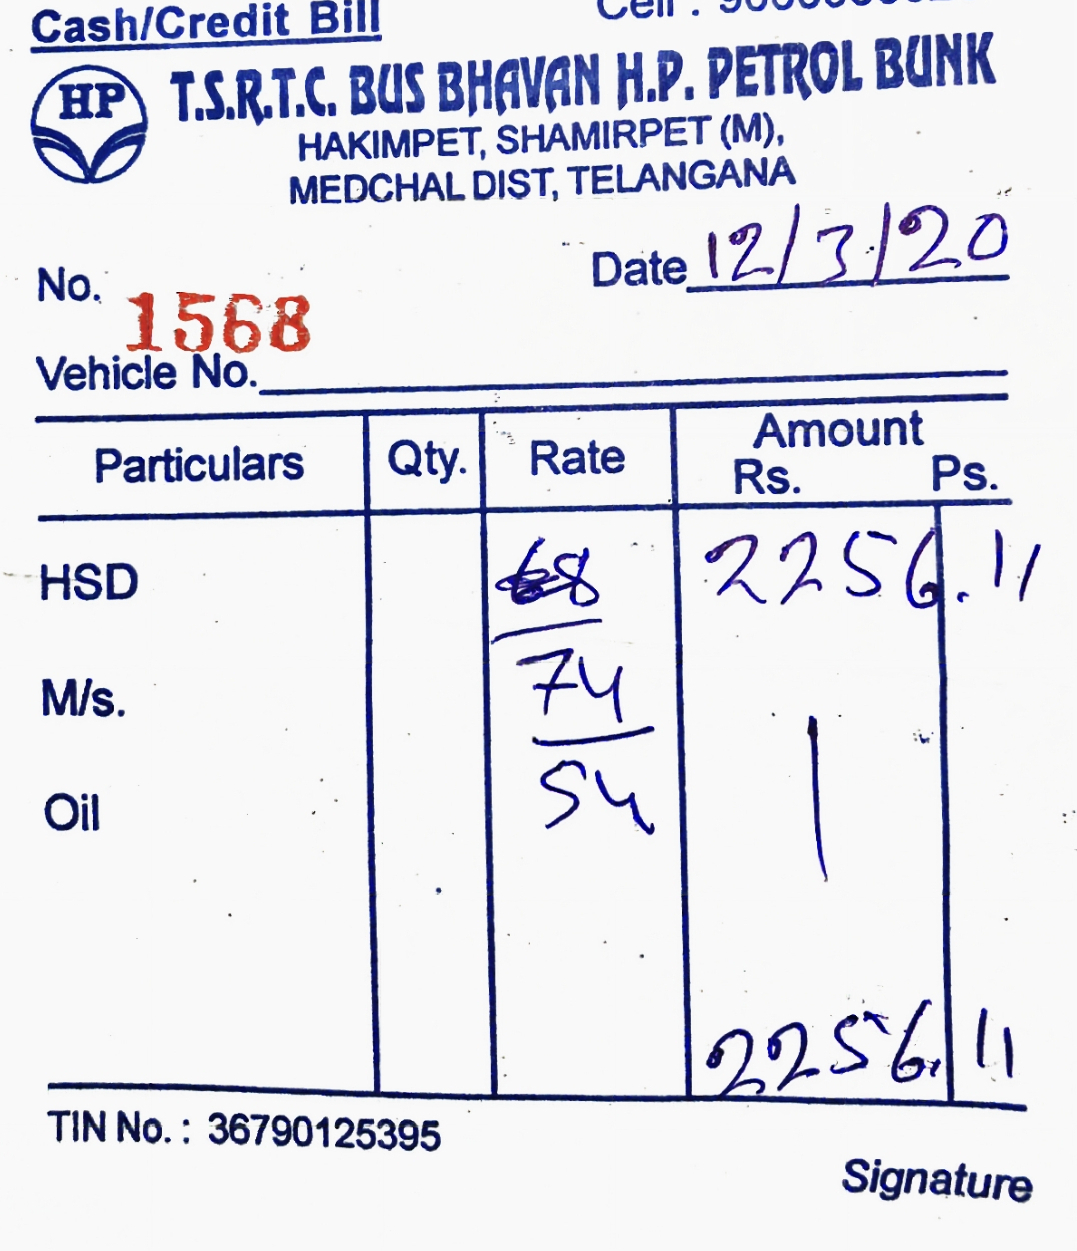 Cash/Credit Bill
Cell :
HP
T.S.R.T.C. BUS BHAVAN H.P. PETROL BUNK
HAKIMPET, SHAMIRPET (M),
MEDCHAL DIST, TELANGANA
No. 1568
Date 12/3/20
Vehicle No.
Particulars Qty. Rate Amount
Rs. Ps.
HSD 68 2256.11
M/s. 74
Oil 54
2256.11
TIN No. : 36790125395
Signature